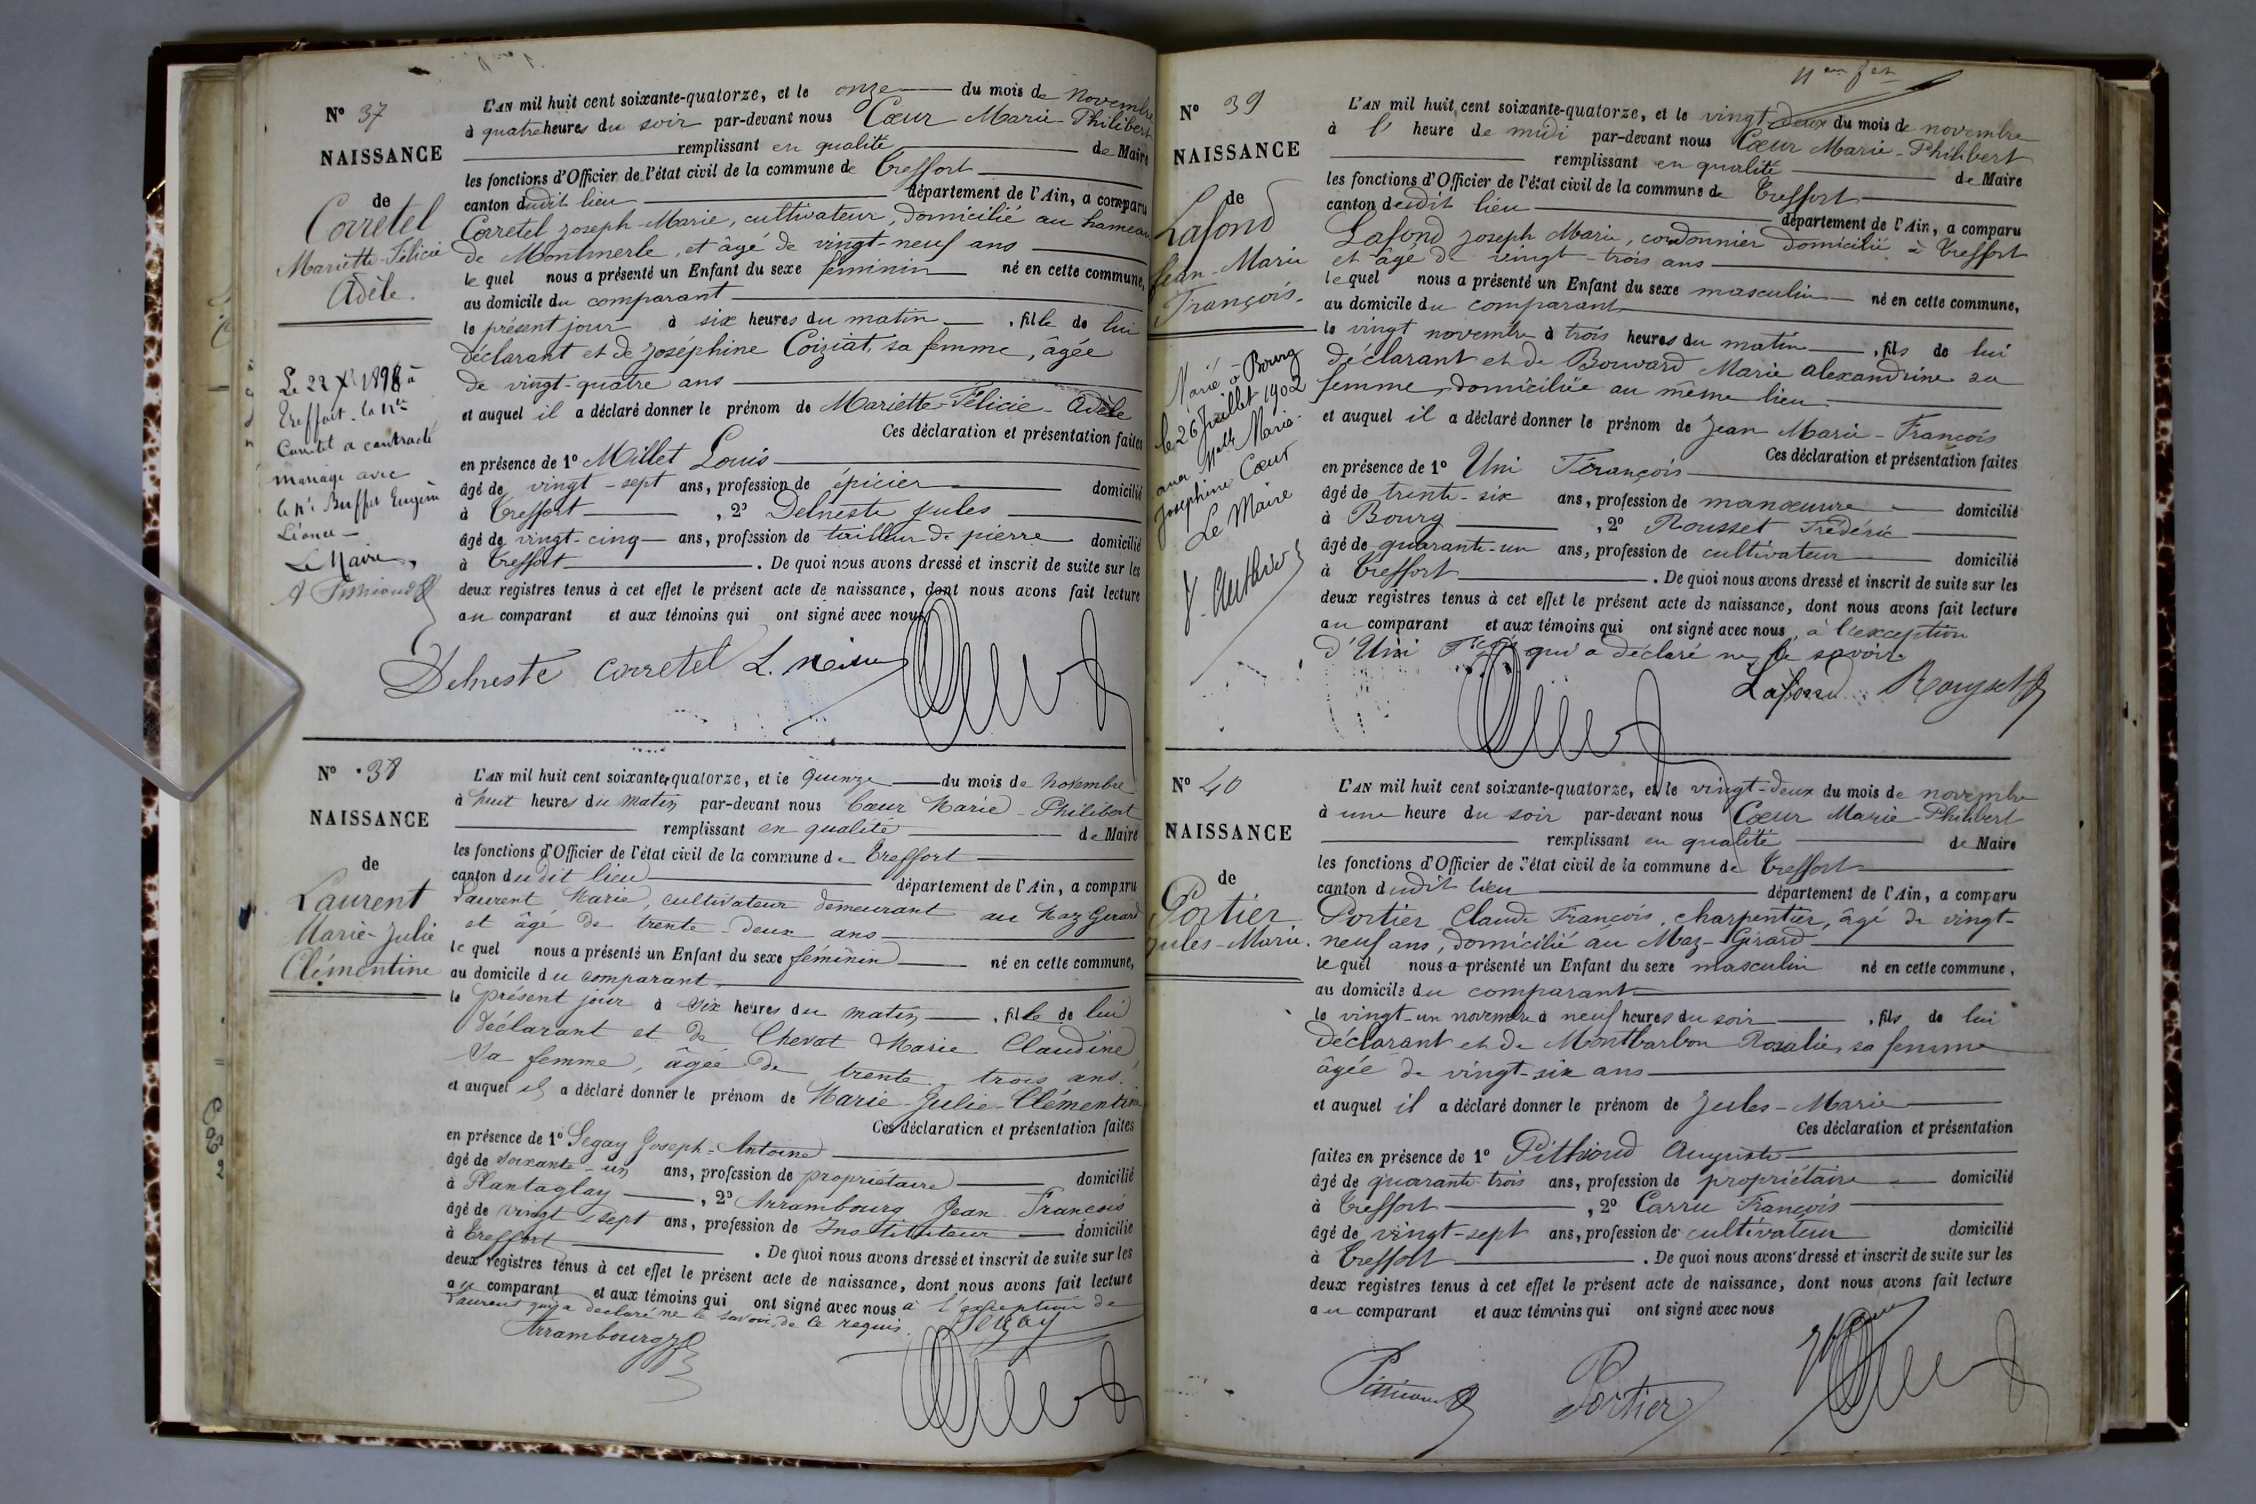 N° 37
NAISSANCE
de
Corretel
Mariette-Félicie
Adèle.
Le 22 1898 à
Treffort la
Corretel a contracté
mariage avec
le Buffet Eugène
Léonce
Le Maire,
L'AN mil huit cent soixante-quatorze, et le onze du mois de novembre
à quatre heures du soir par-devant nous Cœur Marie-Philibert
remplissant en qualité de Maire
les fonctions d'Officier de l'état civil de la commune de Treffort
canton dudit lieu département de l'Ain, a comparu
Corretel Joseph-Marie, cultivateur, domicilié au hameau
de Montmerle, et âgé de vingt-neuf ans
lequel nous a présenté un Enfant du sexe féminin né en cette commune,
au domicile du comparant
le présent jour à six heures du matin, fille de lui
déclarant et de Joséphine Coiziat, sa femme, âgée
de vingt-quatre ans
et auquel il a déclaré donner le prénom de Mariette-Félicie-Adèle
Ces déclaration et présentation faites
en présence de 1° Millet Louis
âgé de vingt-sept ans, profession de épicier domicilié
à Treffort, 2° Delneste Jules
âgé de vingt-cinq ans, profession de tailleur de pierre domicilié
à Treffort. De quoi nous avons dressé et inscrit de suite sur les
deux registres tenus à cet effet le présent acte de naissance, dont nous avons fait lecture
au comparant et aux témoins qui ont signé avec nous
Delneste Corretel L.
N° 38
NAISSANCE
de
Laurent
Marie-Julie
Clémentine
L'AN mil huit cent soixante-quatorze, et le quinze du mois de novembre
à huit heures du matin par-devant nous Cœur Marie-Philibert
remplissant en qualité de Maire
les fonctions d'Officier de l'état civil de la commune de Treffort
canton dudit lieu département de l'Ain, a comparu
Laurent Marie, cultivateur demeurant au Maz Girard
et âgé de trente-deux ans
lequel nous a présenté un Enfant du sexe féminin né en cette commune,
au domicile du comparant
le présent jour à six heures du matin, fille de lui
déclarant et de Chevat Marie Claudine
sa femme, âgée de trente-trois ans.
et auquel il a déclaré donner le prénom de Marie-Julie-Clémentine
Ces déclaration et présentation faites
en présence de 1° Segay Joseph-Antoine
âgé de soixante-un ans, profession de propriétaire domicilié
à Plantaglay, 2° Arrambourg Jean-François
âgé de vingt-sept ans, profession de Instituteur domicilié
à Treffort. De quoi nous avons dressé et inscrit de suite sur les
deux registres tenus à cet effet le présent acte de naissance, dont nous avons fait lecture
au comparant et aux témoins qui ont signé avec nous à l'exception de
Laurent qui a déclaré ne le savoir de ce requis.
Segay
Arrambourg
N° 39
NAISSANCE
de
Lafond
Jean-Marie
François.
Marié à Bourg
le 26 Juillet 1902
avec Melle Marie
Joséphine Cœur
Le Maire
L'AN mil huit cent soixante-quatorze, et le vingt-deux du mois de novembre
à l' heure de midi par-devant nous Cœur Marie-Philibert
remplissant en qualité de Maire
les fonctions d'Officier de l'état civil de la commune de Treffort
canton dudit lieu département de l'Ain, a comparu
Lafond Joseph Marie, cordonnier domicilié à Treffort
et âgé de vingt-trois ans
lequel nous a présenté un Enfant du sexe masculin né en cette commune,
au domicile du comparant
le vingt novembre à trois heures du matin, fils de lui
déclarant et de Bouvard Marie Alexandrine sa
femme, domiciliée au même lieu
et auquel il a déclaré donner le prénom de Jean Marie-François
Ces déclaration et présentation faites
en présence de 1° Uni François
âgé de trente-six ans, profession de manœuvre domicilié
à Bourg, 2° Rousset Frédéric
âgé de quarante-un ans, profession de cultivateur domicilié
à Treffort. De quoi nous avons dressé et inscrit de suite sur les
deux registres tenus à cet effet le présent acte de naissance, dont nous avons fait lecture
au comparant et aux témoins qui ont signé avec nous, à l'exception
d'Uni qui a déclaré ne le savoir
Lafond Rousset
N° 40
NAISSANCE
de
Portier
Jules-Marie.
L'AN mil huit cent soixante-quatorze, et le vingt-deux du mois de novembre
à une heure du soir par-devant nous Cœur Marie-Philibert
remplissant en qualité de Maire
les fonctions d'Officier de l'état civil de la commune de Treffort
canton dudit lieu département de l'Ain, a comparu
Portier Claude François, charpentier, âgé de vingt-
neuf ans, domicilié au Maz-Girard
lequel nous a présenté un Enfant du sexe masculin né en cette commune,
au domicile du comparant
le vingt-un novembre à neuf heures du soir, fils de lui
déclarant et de Montbarbon Rosalie, sa femme
âgée de vingt-six ans
et auquel il a déclaré donner le prénom de Jules-Marie
Ces déclaration et présentation
faites en présence de 1° Pithioud Auguste
âgé de quarante-trois ans, profession de propriétaire domicilié
à Treffort, 2° Carru François
âgé de vingt-sept ans, profession de cultivateur domicilié
à Treffort. De quoi nous avons dressé et inscrit de suite sur les
deux registres tenus à cet effet le présent acte de naissance, dont nous avons fait lecture
au comparant et aux témoins qui ont signé avec nous
Portier